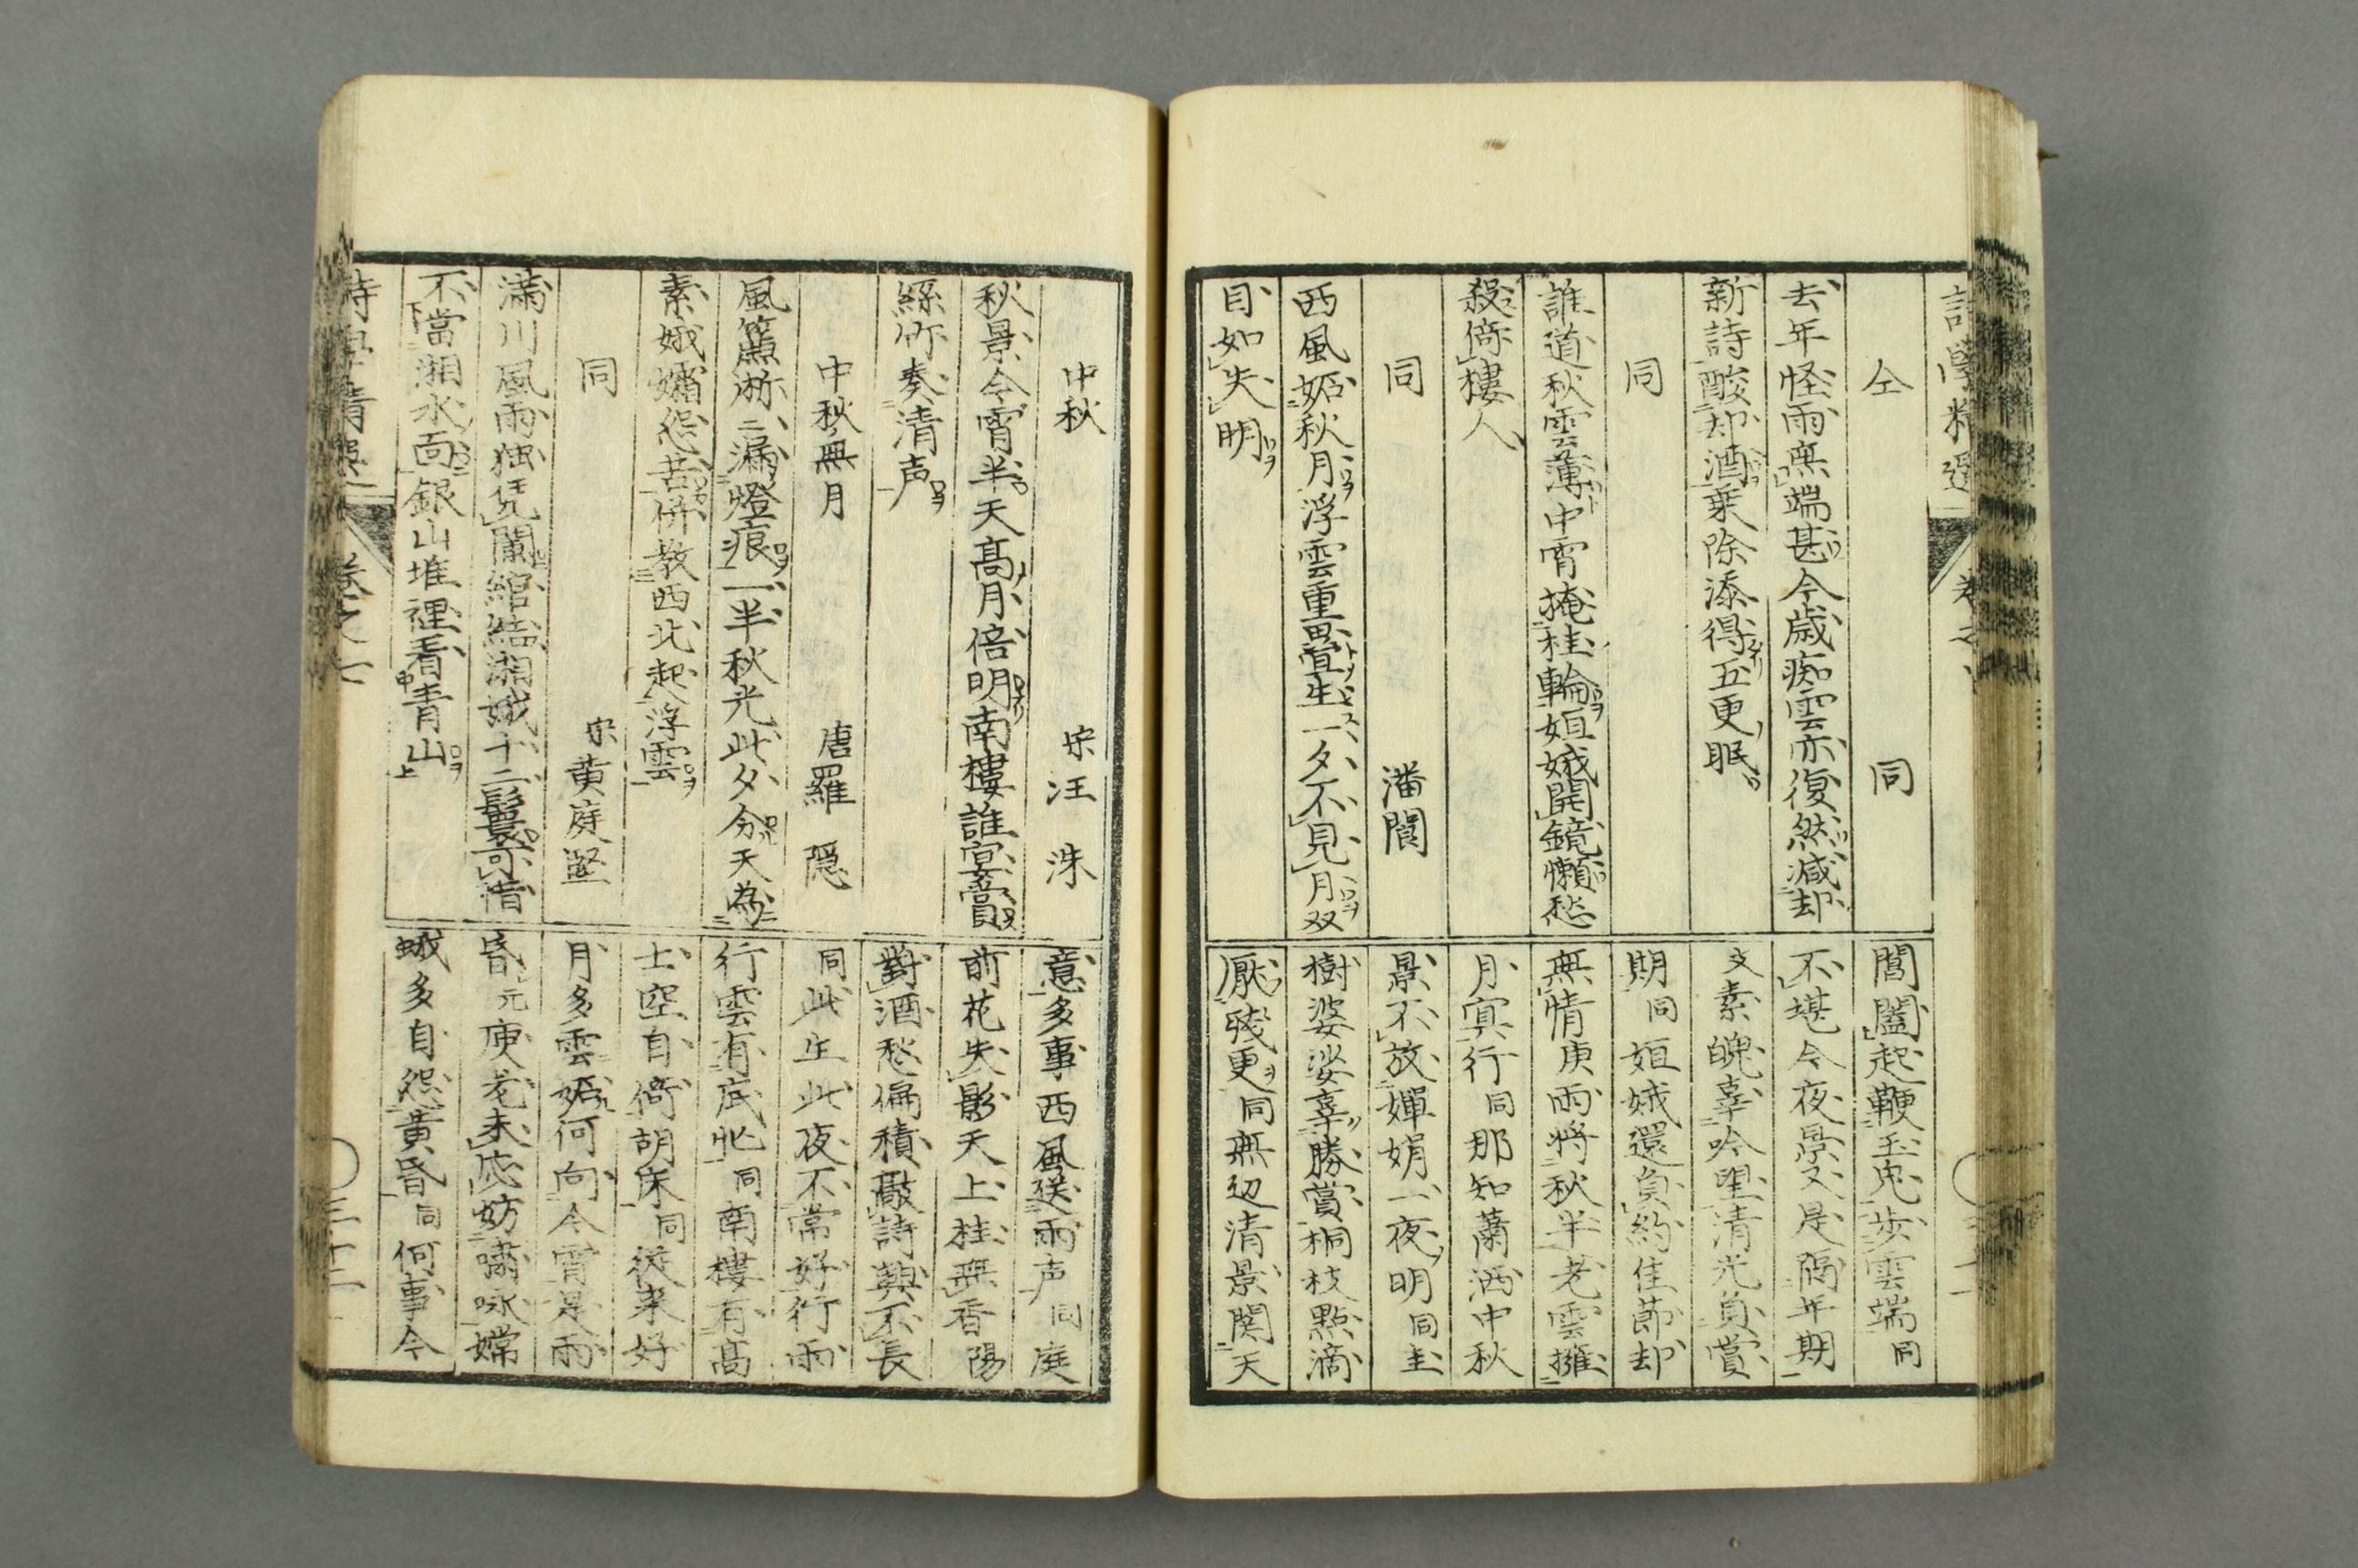 仝　同
去年怪雨無端甚今歳痴雲亦復然減却
新詩酸却酒乗除添得五更眠
同
誰道秋雲薄中宵掩桂輪姮娥開鏡懶愁
殺倚樓人
同　潘閬
西風妬秋月浮雲重疊生一夕不見月双
目如失明
闔起鞭玉兎歩雲端同
不堪今夜景又是隔年期
文素魄辜吟望清光負賞
期同姮娥還負約佳節却
無情庚雨將秋半老雲擁
月寞行同那知蕭洒中秋
景不放嬋娟一夜明同玉
樹婆娑辜勝賞桐枝點滴
厭残更同無辺清景関天
中秋　宋汪洙
秋景今宵半天高月倍明南樓誰宴賞
絲竹奏清声
中秋無月　唐羅隠
風簾淅二漏燈痕一半秋光此夕分天為
素娥孀怨苦併教西北起浮雲
同　宋黄庭堅
滿川風雨独凭闌綰結湘娥十二鬟可惜
不當湘水面銀山堆裡看青山
意多事西風送雨声同庭
前花失影天上桂無香陽
對酒愁偏積敲詩興不長
同此生此夜不常好行雨
行雲有底忙同南樓有高
士空自倚胡床同従来好
月多雲妬何向今宵是雨
昏元庾老未応妨嘯咏嫦
娥多自怨黄昏同何事今
卷之七
三十二